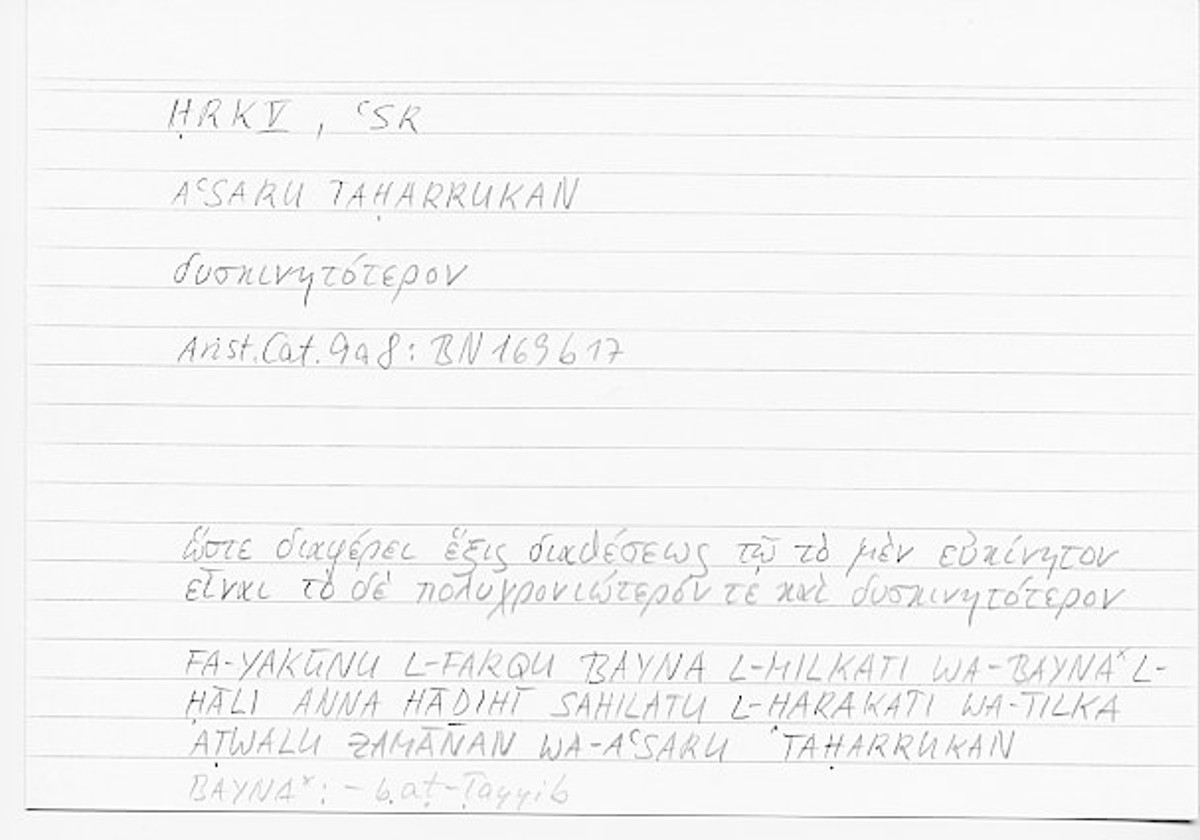 ḤRK V, ʿSR
AʿSARU TAḤARRUKAN
δυσκινητότερον
Arist. Cat. 9a8: BN 169b17
ὥστε διαφέρει ἕξις διαθέσεως τῷ τὸ μὲν εὐκίνητον
εἶναι τὸ δὲ πολυχρονιώτερόν τε καὶ δυσκινητότερον
FA-YAKŪNU L-FARQU BAYNA L-MILKATI WA-BAYNAˣ L-
ḤĀLI ANNA HĀḎIHĪ SAHILATU L-HARAKATI WA-TILKA
AṬWALU ZAMĀNAN WA-AʿSARU TAḤARRUKAN
BAYNAˣ: - b.aṭ-Ṭayyib